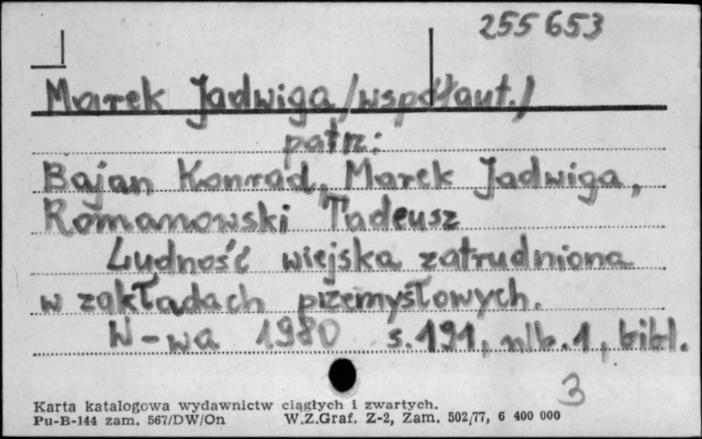 255653
Marek Jadwiga /współaut./
patrz:
Bajan Konrad, Marek Jadwiga,
Romanowski Tadeusz
Ludność wiejska zatrudniona
w zakładach przemysłowych.
W-wa 1980 s.191, nlb.1, bibl.
3
Karta katalogowa wydawnictw ciągłych i zwartych.
Pu-B-144 zam. 567/DW/On W.Z.Graf. Z-2, Zam. 502/77, 6 400 000